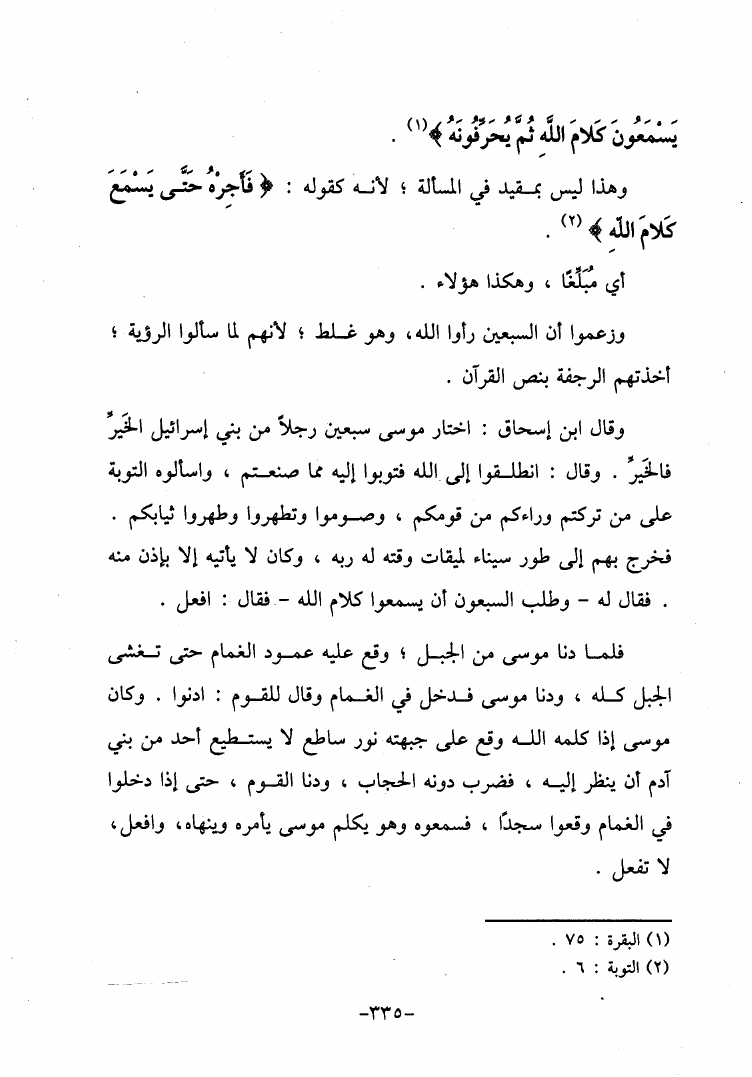 يَسْمَعُونَ كَلامَ اللَّهِ ثُمَّ يُحَرِّفُونَهُ ﴾(١) .
وهذا ليس بمقيد في المسألة ؛ لأنه كقوله : ﴿ فَأَجِرْهُ حَتَّى يَسْمَعَ
كَلامَ اللَّهِ ﴾ (٢) .
أي مُبَلِّغًا ، وهكذا هؤلاء .
وزعموا أن السبعين رأوا الله، وهو غلط ؛ لأنهم لما سألوا الرؤية ؛
أخذتهم الرجفة بنص القرآن .
وقال ابن إسحاق : اختار موسى سبعين رجلاً من بني إسرائيل الخَيرِّ
فالخَيرِّ . وقال : انطلقوا إلى الله فتوبوا إليه مما صنعتم ، واسألوه التوبة
على من تركتم وراءكم من قومكم ، وصوموا وتطهروا وطهروا ثيابكم .
فخرج بهم إلى طور سيناء لميقات وقته له ربه ، وكان لا يأتيه إلا بإذن منه
. فقال له – وطلب السبعون أن يسمعوا كلام الله – فقال : افعل .
فلما دنا موسى من الجبل ؛ وقع عليه عمود الغمام حتى تغشى
الجبل كله ، ودنا موسى فدخل في الغمام وقال للقوم : ادنوا . وكان
موسى إذا كلمه الله وقع على جبهته نور ساطع لا يستطيع أحد من بني
آدم أن ينظر إليه ، فضرب دونه الحجاب ، ودنا القوم ، حتى إذا دخلوا
في الغمام وقعوا سجدًا ، فسمعوه وهو يكلم موسى يأمره وينهاه، وافعل،
لا تفعل .
(١) البقرة : ٧٥ .
(٢) التوبة : ٦ .
-٣٣٥-